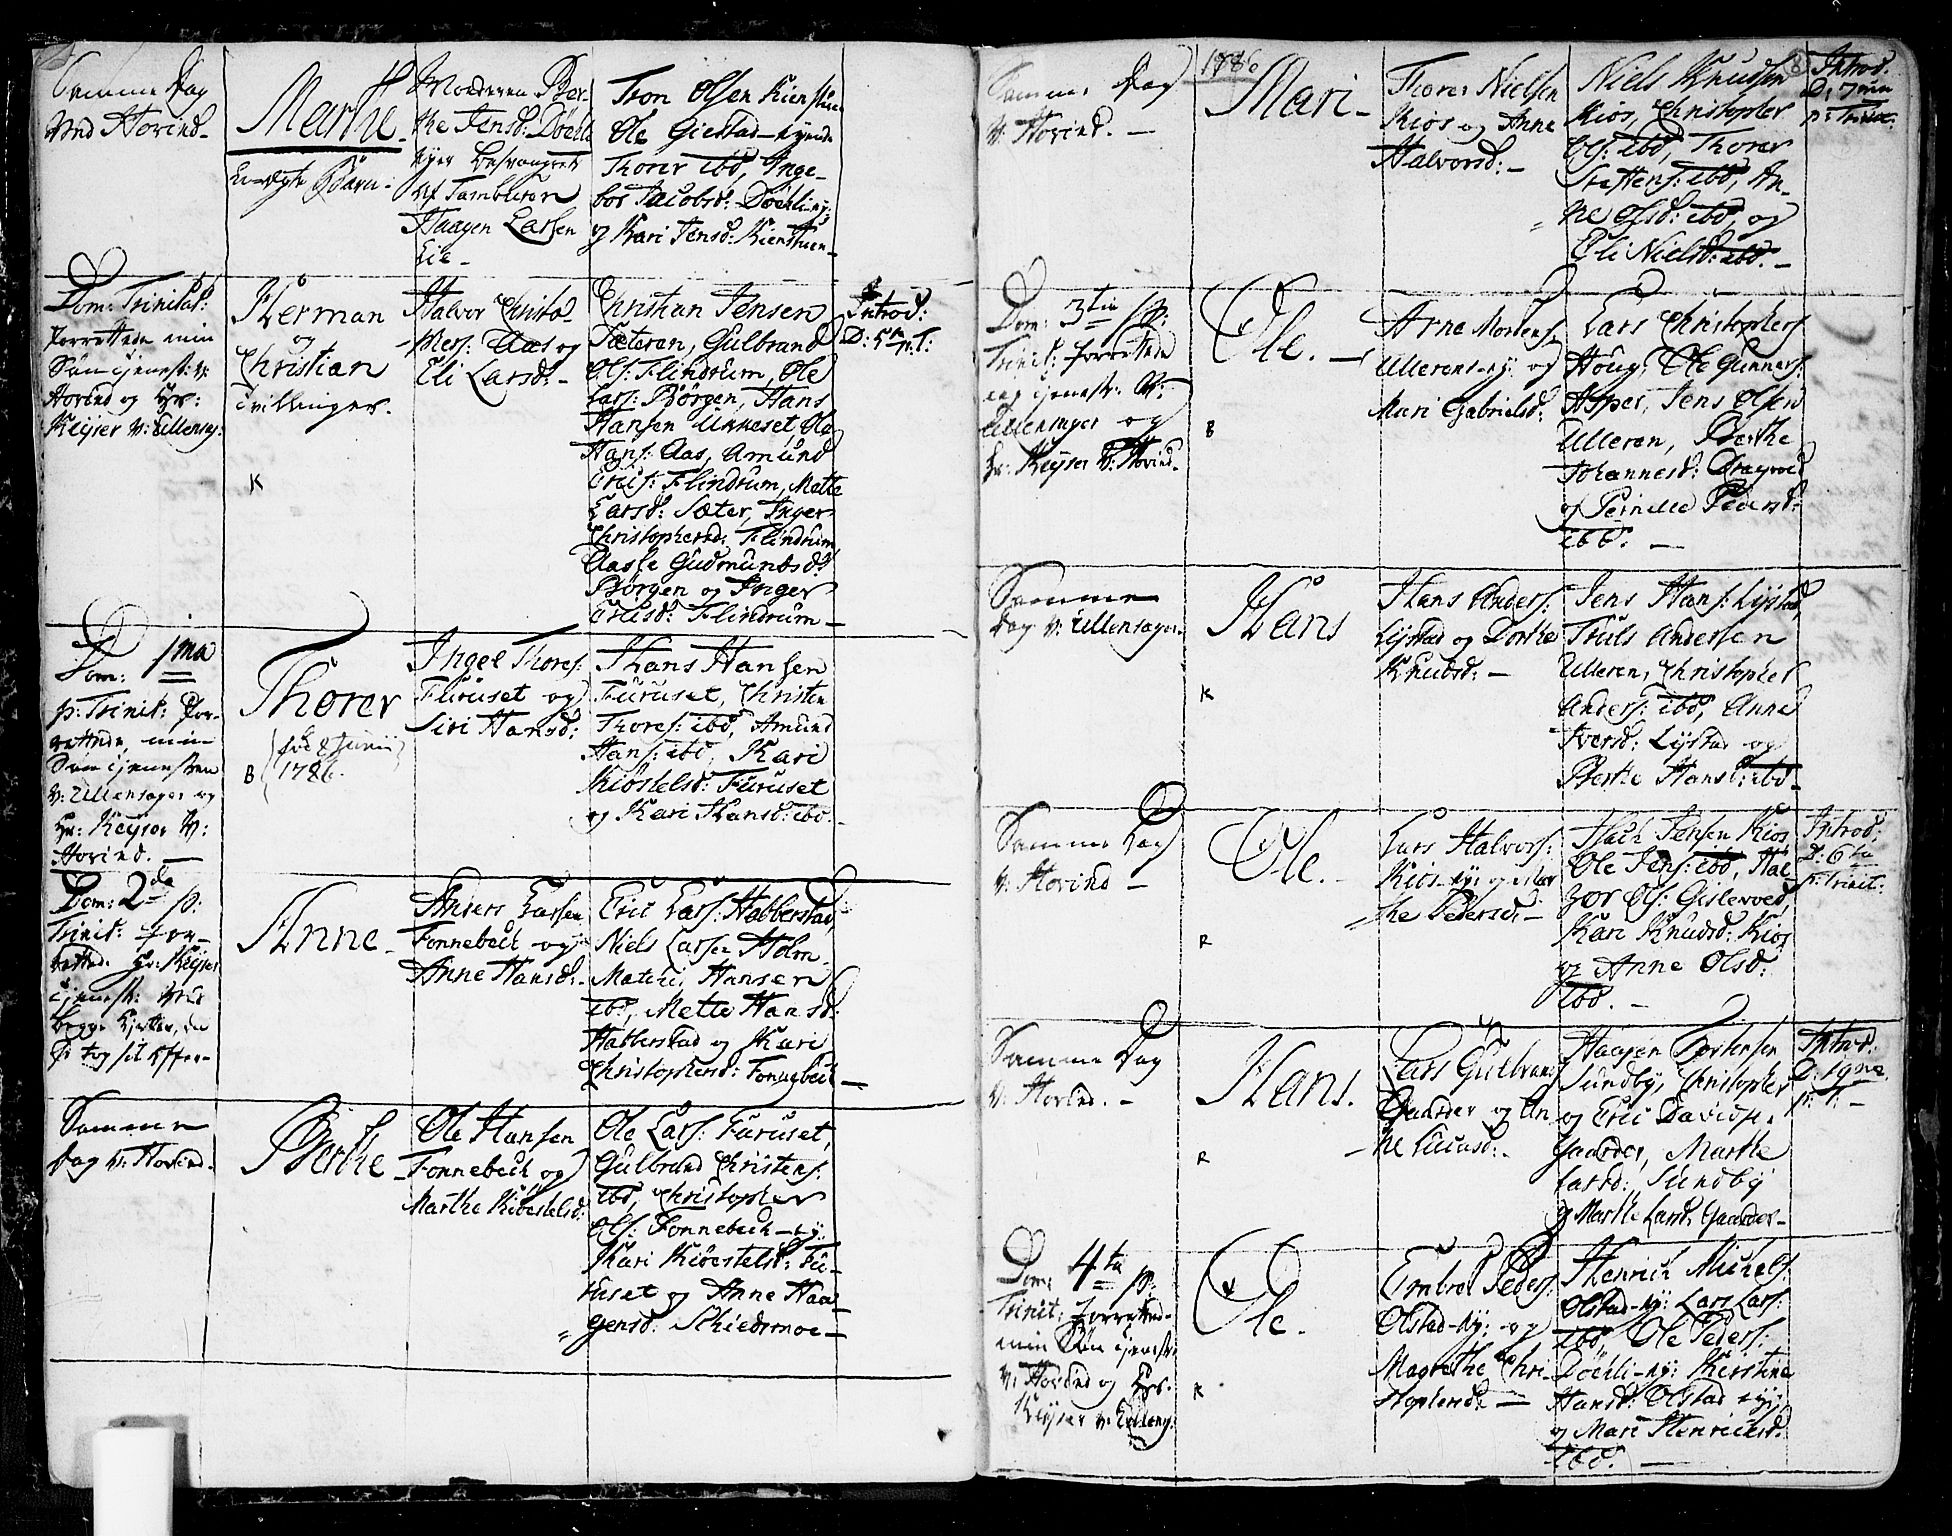 Samme Dag
ved Hovind.
Marthe.
Uægte Barn.
Moderen Ber-
the Jensd: Døehli
Haagen Larsen
Lie
Tron Olsen Kienstuen
Ole Giestad-eyend
Thorer ibd, Inge-
bor Jacobsd: Døehli-ey:
og Kari Jensd: Kienstuen

Dom: Trinitat:
forrettede min
Søn tjenest: v:
Hovind og Hr:
Keyser v: Ullensag:
Herman
og
Christian
tvillinger.
K
Halvor Christo-
phers: Aas og
Eli Larsd:
Christian Jensen
Sæteren, Gulbrand
Ols: Flindrum, Ole
Lars: Børgen, Hans
Hansen Ukkeset, Ole
Hans: Aas, Amund
Erics: Flindrum, Mette
Larsd: Sæter, Inger
Christophersd: Flindrum
Aasle Gudmundsd:
Børgen og Inger
Ericsd: Flindrum
Introd:
D: 5ta p. T:

Dom: 1ma
p: Trinit: for-
rettede min
Søn tjenesten
v: Ullensager og
Hr: Keyser v:
Hovind.
Thorer
1786.
B
Ingel Thores:
Furuset og
Siri Hansd:
Hans Hansen
Furuset, Christen
Thores: ibd, Amund
Hans: ibd, Kari
Kiøstelsd: Furuset
og Kari Hansd: ibd.

Dom: 2de p:
Trinit: for-
rettede Hr: Keyser
tjenest: ved
begge Kirker, da
Anne
Anders Larsen
Fonnebech og
Anne Hansd:
Eric Lars: Habberstad,
Niels Larsen Holm
Hansen
ibd, Mette Hansd:
Habberstad og Kari
Christophersd: Fonnebech

Samme
Dag v: Hovind.
Berthe
Ole Hansen
Fonnebech og
Marthe Kiøstelsd:
Ole Lars: Furuset,
Gulbrand Christens:
ibd, Christopher
Ols: Fonnebech-ey:
Kari Kiøestelsd: Fu-
ruset og Anne Haa-
gensd: Schiedsmoe

1786
8
Samme Dag
v: Hovind.
Mari
Thorer Nielsen
Kios og Anne
Halvorsd:
Niels Knudsen
Kios, Christopher
Ols: ibd, Thorer
Steffens: ibd, An-
ne Olsd: ibd, og
Eli Nielsd: ibd.
Introd.
p: Trinit:

Dom: 3tia p:
Trinit: forrettede
jeg tjenest: v:
Ullensager og
Hr: Keyser v: Hovind.
Ole.
B
Arne Mortens:
Ullerens-ey: og
Mari Gabrielsd:
Lars Christophers:
Houg, Ole Gunners:
Asper, Jens Olsen
Ulleren, Berthe
Johannesd: Dragvold
og Pernelle Pedersd:
ibd.

Samme
Dag v: Ullensager.
Hans
K
Hans Anders:
Lystad og Dorthe
Knudsd:
Jens Hans: Lystad,
Truls Andersen
Ulleren, Christopher
Anders: ibd, Anne
Iversd: Lystad og
Berthe Hansd: ibd

Samme Dag
v: Hovind
Ole.
R
Lars Halvors:
Kios-ey: og Mar-
the Pedersd:
Jensen Kios,
Ole Jens: ibd, Hal-
vor Ols: Gislevoed,
Kari Knudsd: Kios
og Anne Olsd:
ibd.
Introd:
D: 6ta
p: Trinit:

Samme Dag
v: Hovind.
Hans.
R
Lars Gulbrands:
Gaarder og An-
ne
Haagen Torstensen
Sundby, Christopher
og Eric Davids:
Gaarder, Marthe
Larsd: Sundby
og Marthe Larsd: Gaarder
Introd:

Dom: 4ta p:
Trinit: forrettede
min Søn tjenest:
v: Hovind og Hr:
Keyser v: Ullensag:
Ole.
K
Embret Peders:
Olstad-ey: og
Magrethe Chri-
stophersd:
Henrich Michels:
Olstad-ey: Lars Lars:
ibd, Ole Peders:
Døehli-ey: Kierstine
Hansd: Olstad-ey:
og Mari Henrichsd:
ibd.